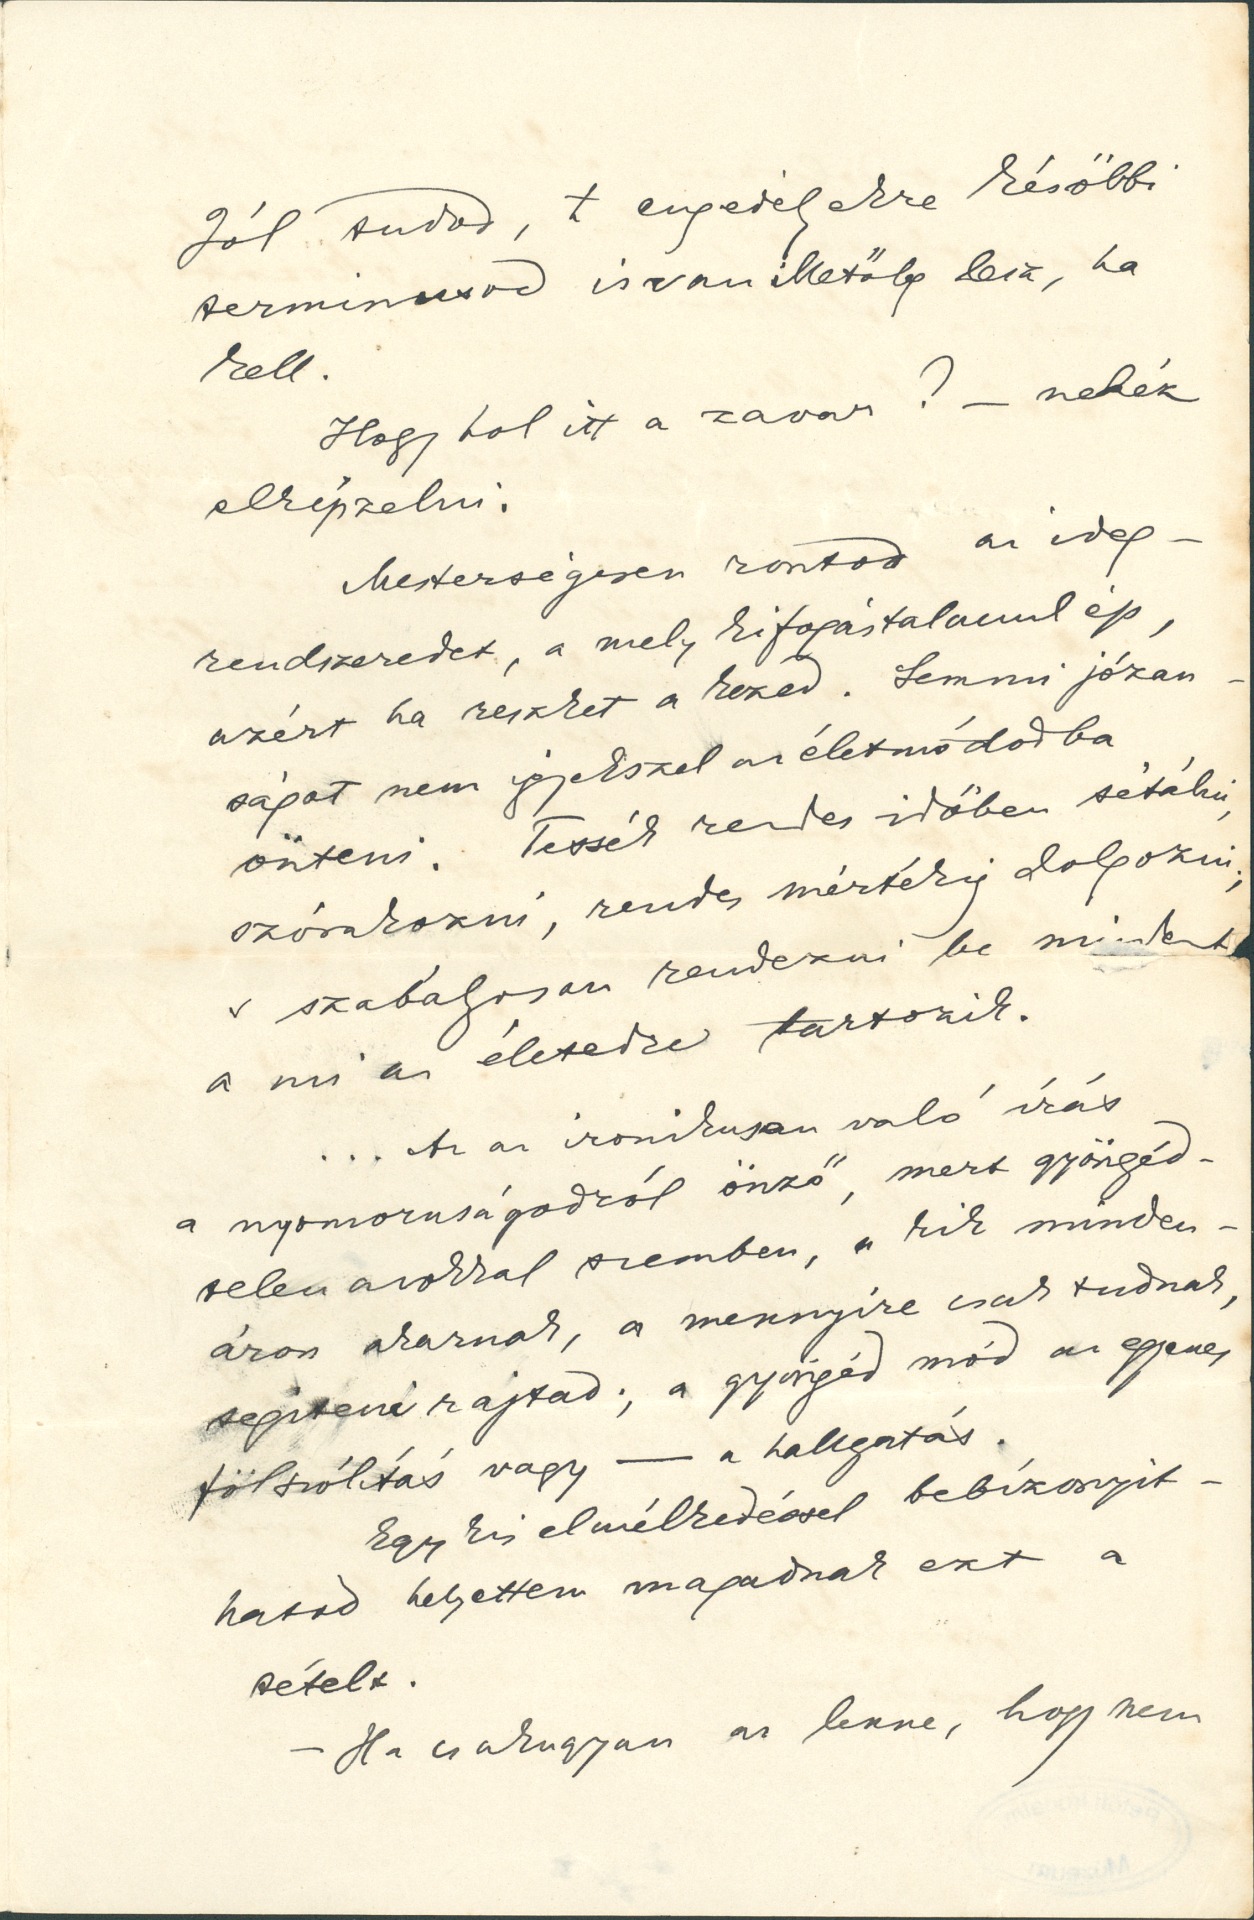 Jól tudod, t engedélyekre későbbi
terminusod is van illetőleg lesz, ha
kell.
Hogy hol itt a zavar? – nehéz
elképzelni.
Mesterségesen rontod az ideg-
rendszeredet, a mely kifogástalanul ép,
azért ha reszket a kezed. Semmi józan-
ságot nem igyekszel az életmódodba
önteni. Tessék rendes időben sétálni,
szórakozni, rendes mértékig dolgozni;
s szabályosan rendezni be mindent
a mi az életedre tartozik.
... Az az ironikusan való írás
a nyomoruságodról önző, mert gyöngéd-
telen azokkal szemben, a kik minden-
áron akarnak, a mennyire csak tudnak,
segíteni rajtad; a gyöngéd mód az egyenes
fölszólítás vagy — a hallgatás.
Egy kis elmélkedéssel bebizonyít-
hatod helyettem magadnak ezt a
tételt.
– Ha csakugyan az lenne, hogy nem